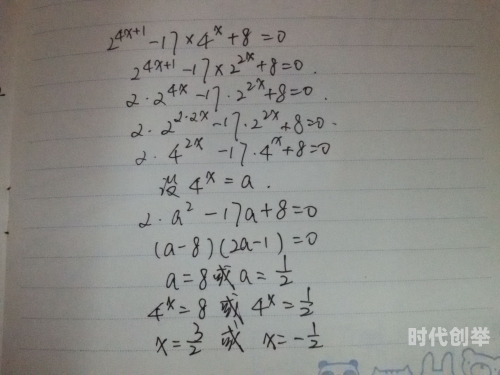 2^{4x+1} - 17 × 4^x + 8 = 0
2^{4x+1} - 17 × 2^{2x} + 8 = 0.
2 · 2^{4x} - 17 · 2^{2x} + 8 = 0.
2 · 2^{2·2x} - 17 · 2^{2x} + 8 = 0.
2 · 4^{2x} - 17 · 4^x + 8 = 0
设 4^x = a.
2 · a^2 - 17a + 8 = 0
(a-8)(2a-1) = 0
a = 8 或 a = 1/2
4^x = 8 或 4^x = 1/2
x = 3/2 或 x = -1/2
时代创举